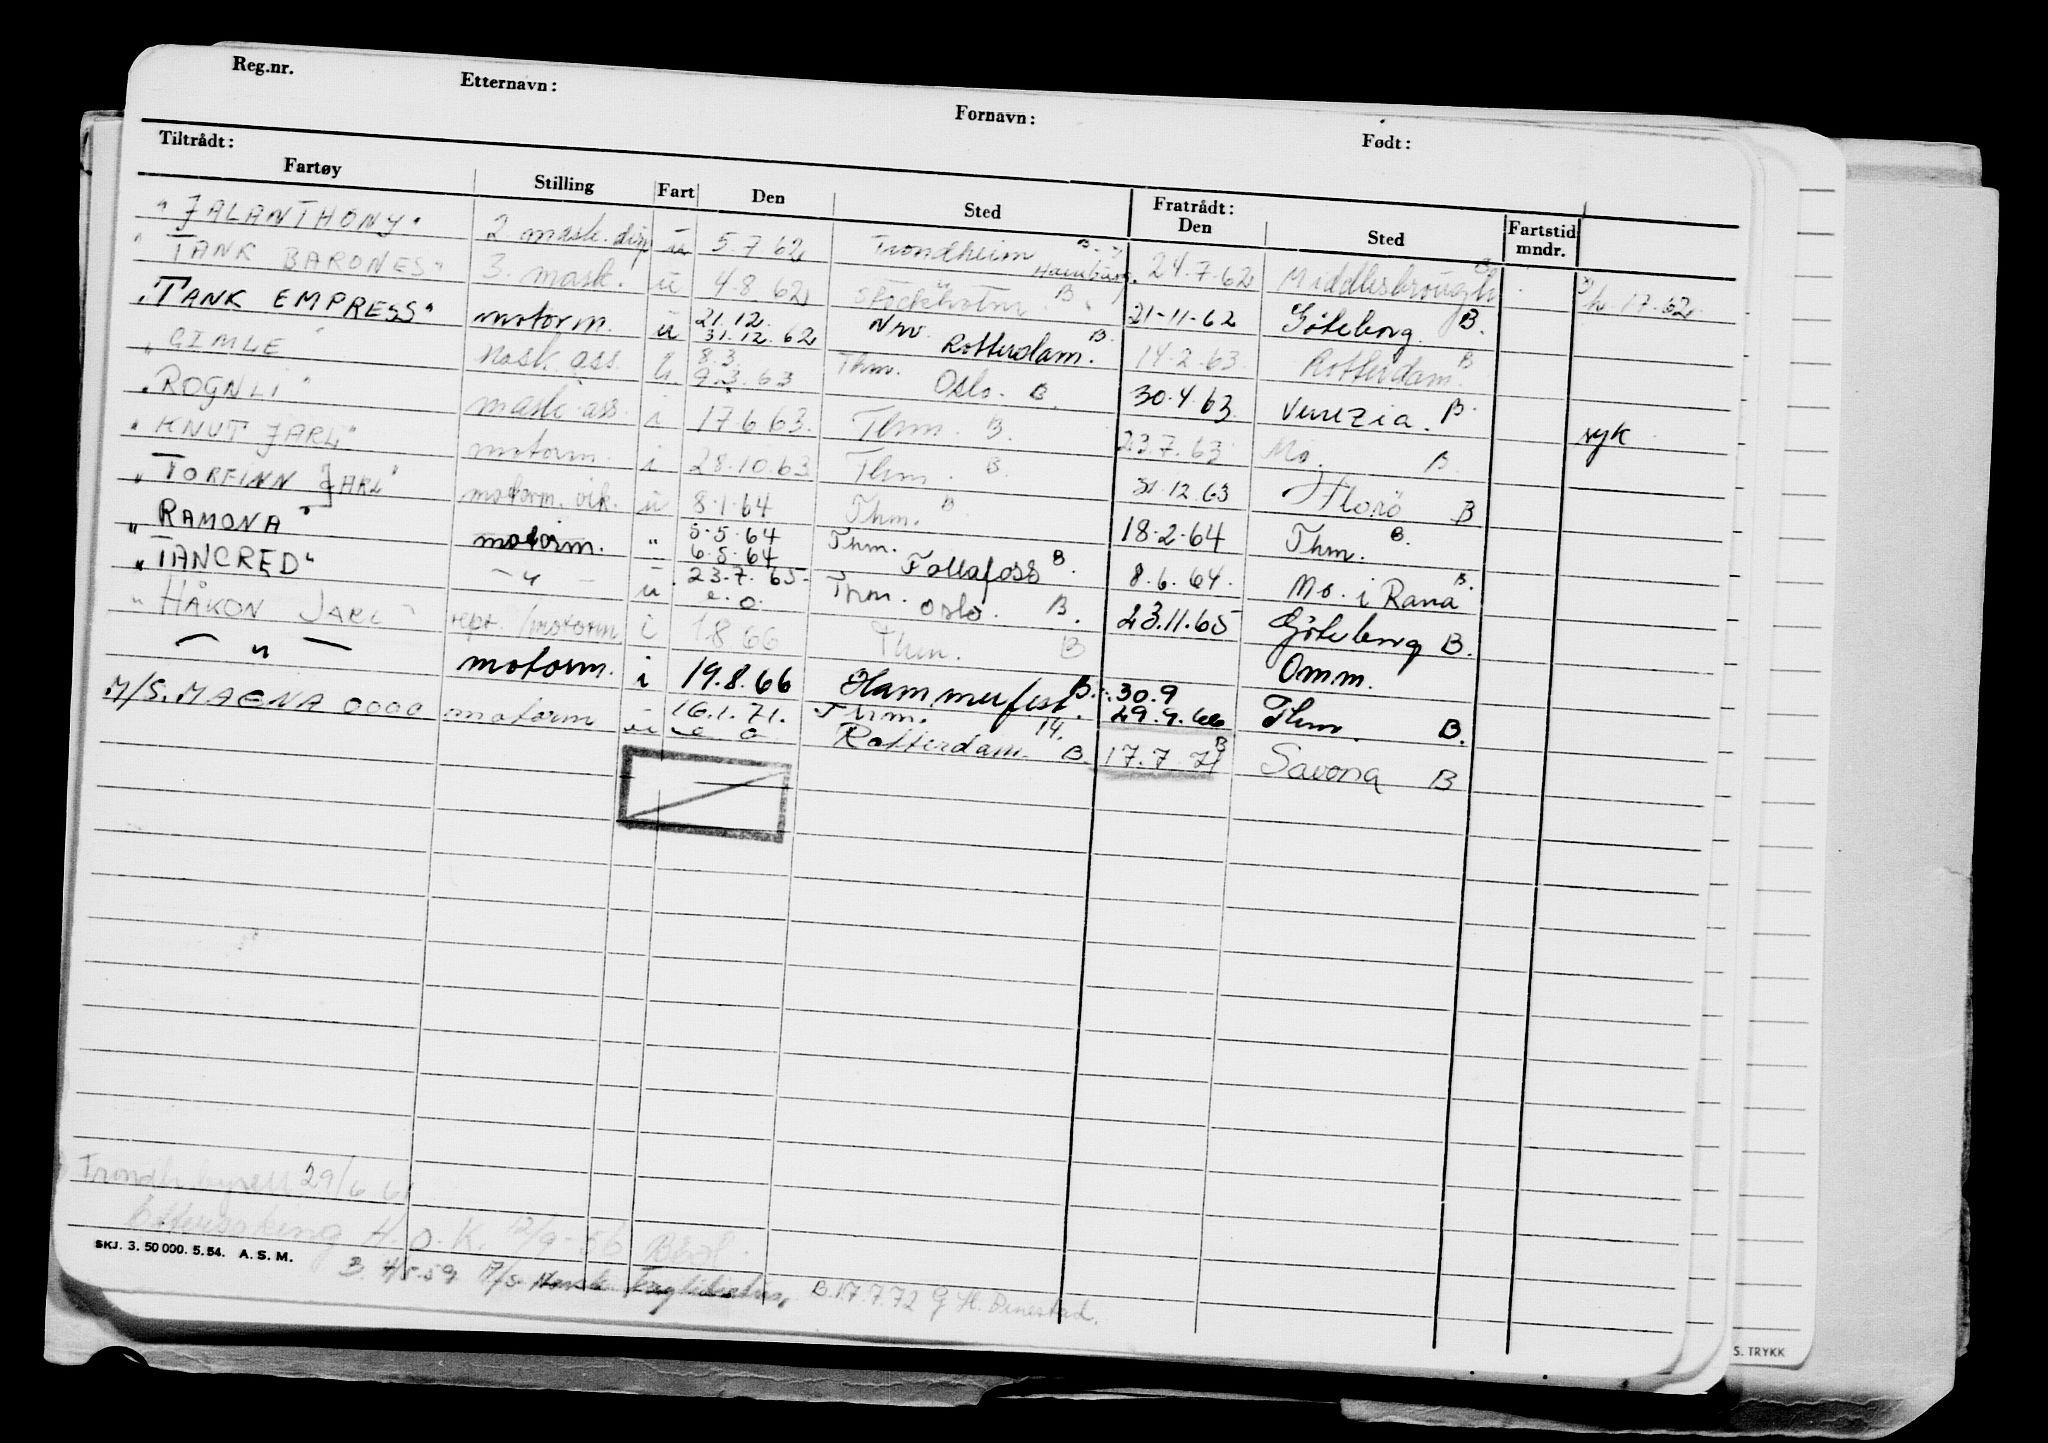 Reg.nr. Etternavn: Fornavn: Født:
Tiltrådt: Fratrådt:
Fartøy Stilling Fart Den Sted Den Sted Fartstid mndr.
"JALANTHONY" 2 mask. disp u 5.7.62 Trondheim B. Hamburg. 24.7.62 Middlesbrough B
"TANK BARONESS" 3. mask. u 4.8.62 Stockholm B. 21-11-62 Göteborg B.
"TANK EMPRESS" motorm. u 21.12. 31.12.62 Nw. Rotterdam. B. 14.2.63 Rotterdam. B
"GIMLE" Mask. ass. u. 8.3 9.3.63 Thm. Oslo. B. 30.4.63 Venezia. B.
"ROGNLI" mask. ass. i 17.6.63. Thm. B. 23.7.63 Mo. B. syk
"KNUT JARL" motorm. i 28.10.63 Thm. B. 31.12.63 Florö B
"TORFINN JARL" motorm. vik. u 8.1.64 Thm. B. 18.2.64 Thm. B.
"RAMONA" motorm. " 5.5.64 6.5.64 Thm. Follafoss B. 8.6.64. Mo. i Rana B.
"TANCRED" - " - u 23.7.65. Thm. Oslo. B. 23.11.65 Göteborg B.
"HÅKON JARL" repr./motorm i 1.8.66 Thm. B Omm.
- " - motorm. i 19.8.66 Hammerfest B. 30.9 29.9.66 Thm. B.
M/S. MAGNA 0000 motorm u 16.1.71. Thm. 14. Rotterdam. B. 17.7.71 B Savona B
Trondh. 29/6 61
H.O.K. 12/9-56
SKJ. 3. 50 000. 5. 54. A. S. M.
B. 4/5.59 M/S B.17.7.72
S. TRYKK